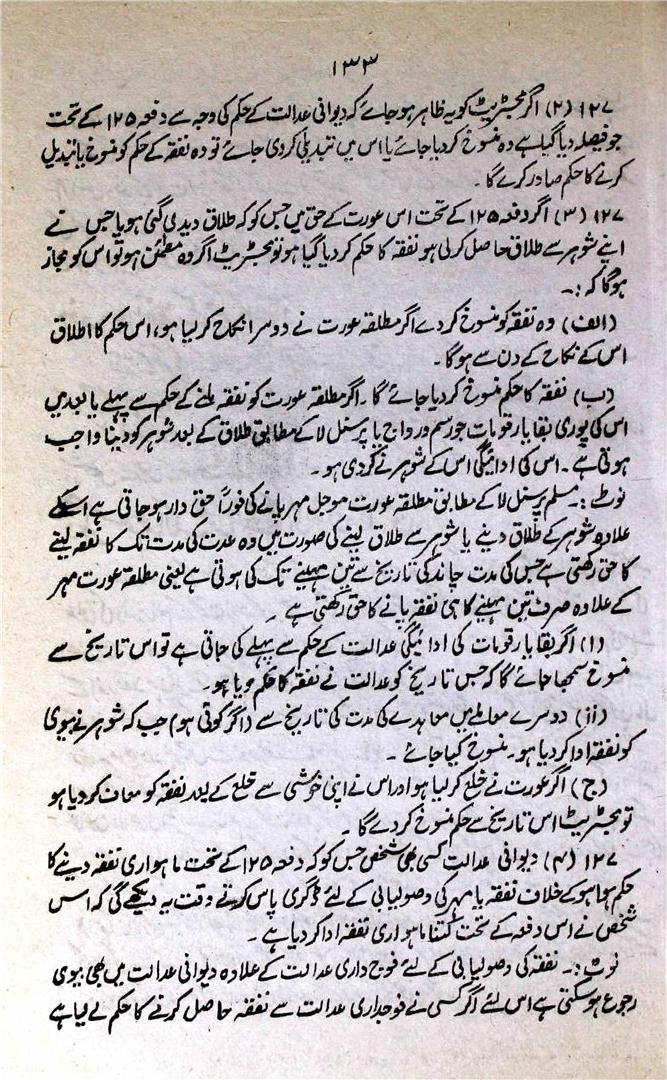 ۱۳۳
۱۲۷ (۲) اگر مجسٹریٹ کو یہ ظاہر ہو جائے کہ دیوانی عدالت کے حکم کی وجہ سے دفعہ ۱۲۵ کے تحت
جو فیصلہ دیا گیا ہے وہ منسوخ کر دیا جائے یا اس میں تبدیلی کر دی جائے تو وہ نفقہ کے حکم کو منسوخ یا تبدیل
کرنے کا حکم صادر کرے گا۔
۱۲۷ (۳) اگر دفعہ ۱۲۵ کے تحت اس عورت کے حق میں جس کو کہ طلاق دیدی گئی ہو یا جس نے
اپنے شوہر سے طلاق حاصل کر لی ہو نفقہ کا حکم کر دیا گیا ہو تو مجسٹریٹ اگر وہ مطمئن ہو تو اس کو مجاز
ہوگا کہ :۔
(الف) وہ نفقہ کو منسوخ کر دے اگر مطلقہ عورت نے دوسرا نکاح کر لیا ہو، اس حکم کا اطلاق
اس کے نکاح کے دن سے ہوگا۔
(ب) نفقہ کا حکم منسوخ کر دیا جائے گا۔ اگر مطلقہ عورت کو نفقہ ملنے کے حکم سے پہلے یا بعد میں
اس کی پوری بقایا رقومات جو رسم و رواج یا پرسنل لا کے مطابق طلاق کے بعد شوہر کو دینا واجب
ہوتی ہے۔ اس کی ادائیگی اس کے شوہر نے کر دی ہو۔
نوٹ :۔ مسلم پرسنل لا کے مطابق مطلقہ عورت موجل مہر پانے کی فوراً حق دار ہو جاتی ہے اسکے
علاوہ شوہر کے طلاق دینے یا شوہر سے طلاق لینے کی صورت میں وہ عدت کی مدت تک کا نفقہ لینے
کا حق رکھتی ہے جس کی مدت چاند کی تاریخ سے تین مہینے تک کی ہوتی ہے یعنی مطلقہ عورت مہر
کے علاوہ صرف تین مہینے کا ہی نفقہ پانے کا حق رکھتی ہے۔
(i) اگر بقایا رقومات کی ادائیگی عدالت کے حکم سے پہلے کی جاتی ہے تو اس تاریخ سے
منسوخ سمجھا جائے گا کہ جس تاریخ کو عدالت نے نفقہ کا حکم دیا ہو۔
(ii) دوسرے معاملے میں معاہدے کی مدت کی تاریخ سے (اگر کوئی ہو) جب کہ شوہر نے بیوی
کو نفقہ ادا کر دیا ہو۔ منسوخ کیا جائے۔
(ج) اگر عورت نے خلع کر لیا ہو اور اس نے اپنی خوشی سے خلع کے بعد نفقہ کو معاف کر دیا ہو
تو مجسٹریٹ اس تاریخ سے حکم منسوخ کر دے گا۔
۱۲۷ (۴) دیوانی عدالت کسی بھی شخص جس کو کہ دفعہ ۱۲۵ کے تحت ماہواری نفقہ دینے کا
حکم ہوا ہو کے خلاف نفقہ یا مہر کی وصولیابی کے لئے ڈگری پاس کرتے وقت یہ دیکھے گی کہ اس
شخص نے اس دفعہ کے تحت کتنا ماہواری نفقہ ادا کر دیا ہے۔
نوٹ :۔ نفقہ کی وصولیابی کے لئے فوجداری عدالت کے علاوہ دیوانی عدالت میں بھی بیوی
رجوع ہو سکتی ہے اس لئے اگر کسی نے فوجداری عدالت سے نفقہ حاصل کرنے کا حکم لے لیا ہے